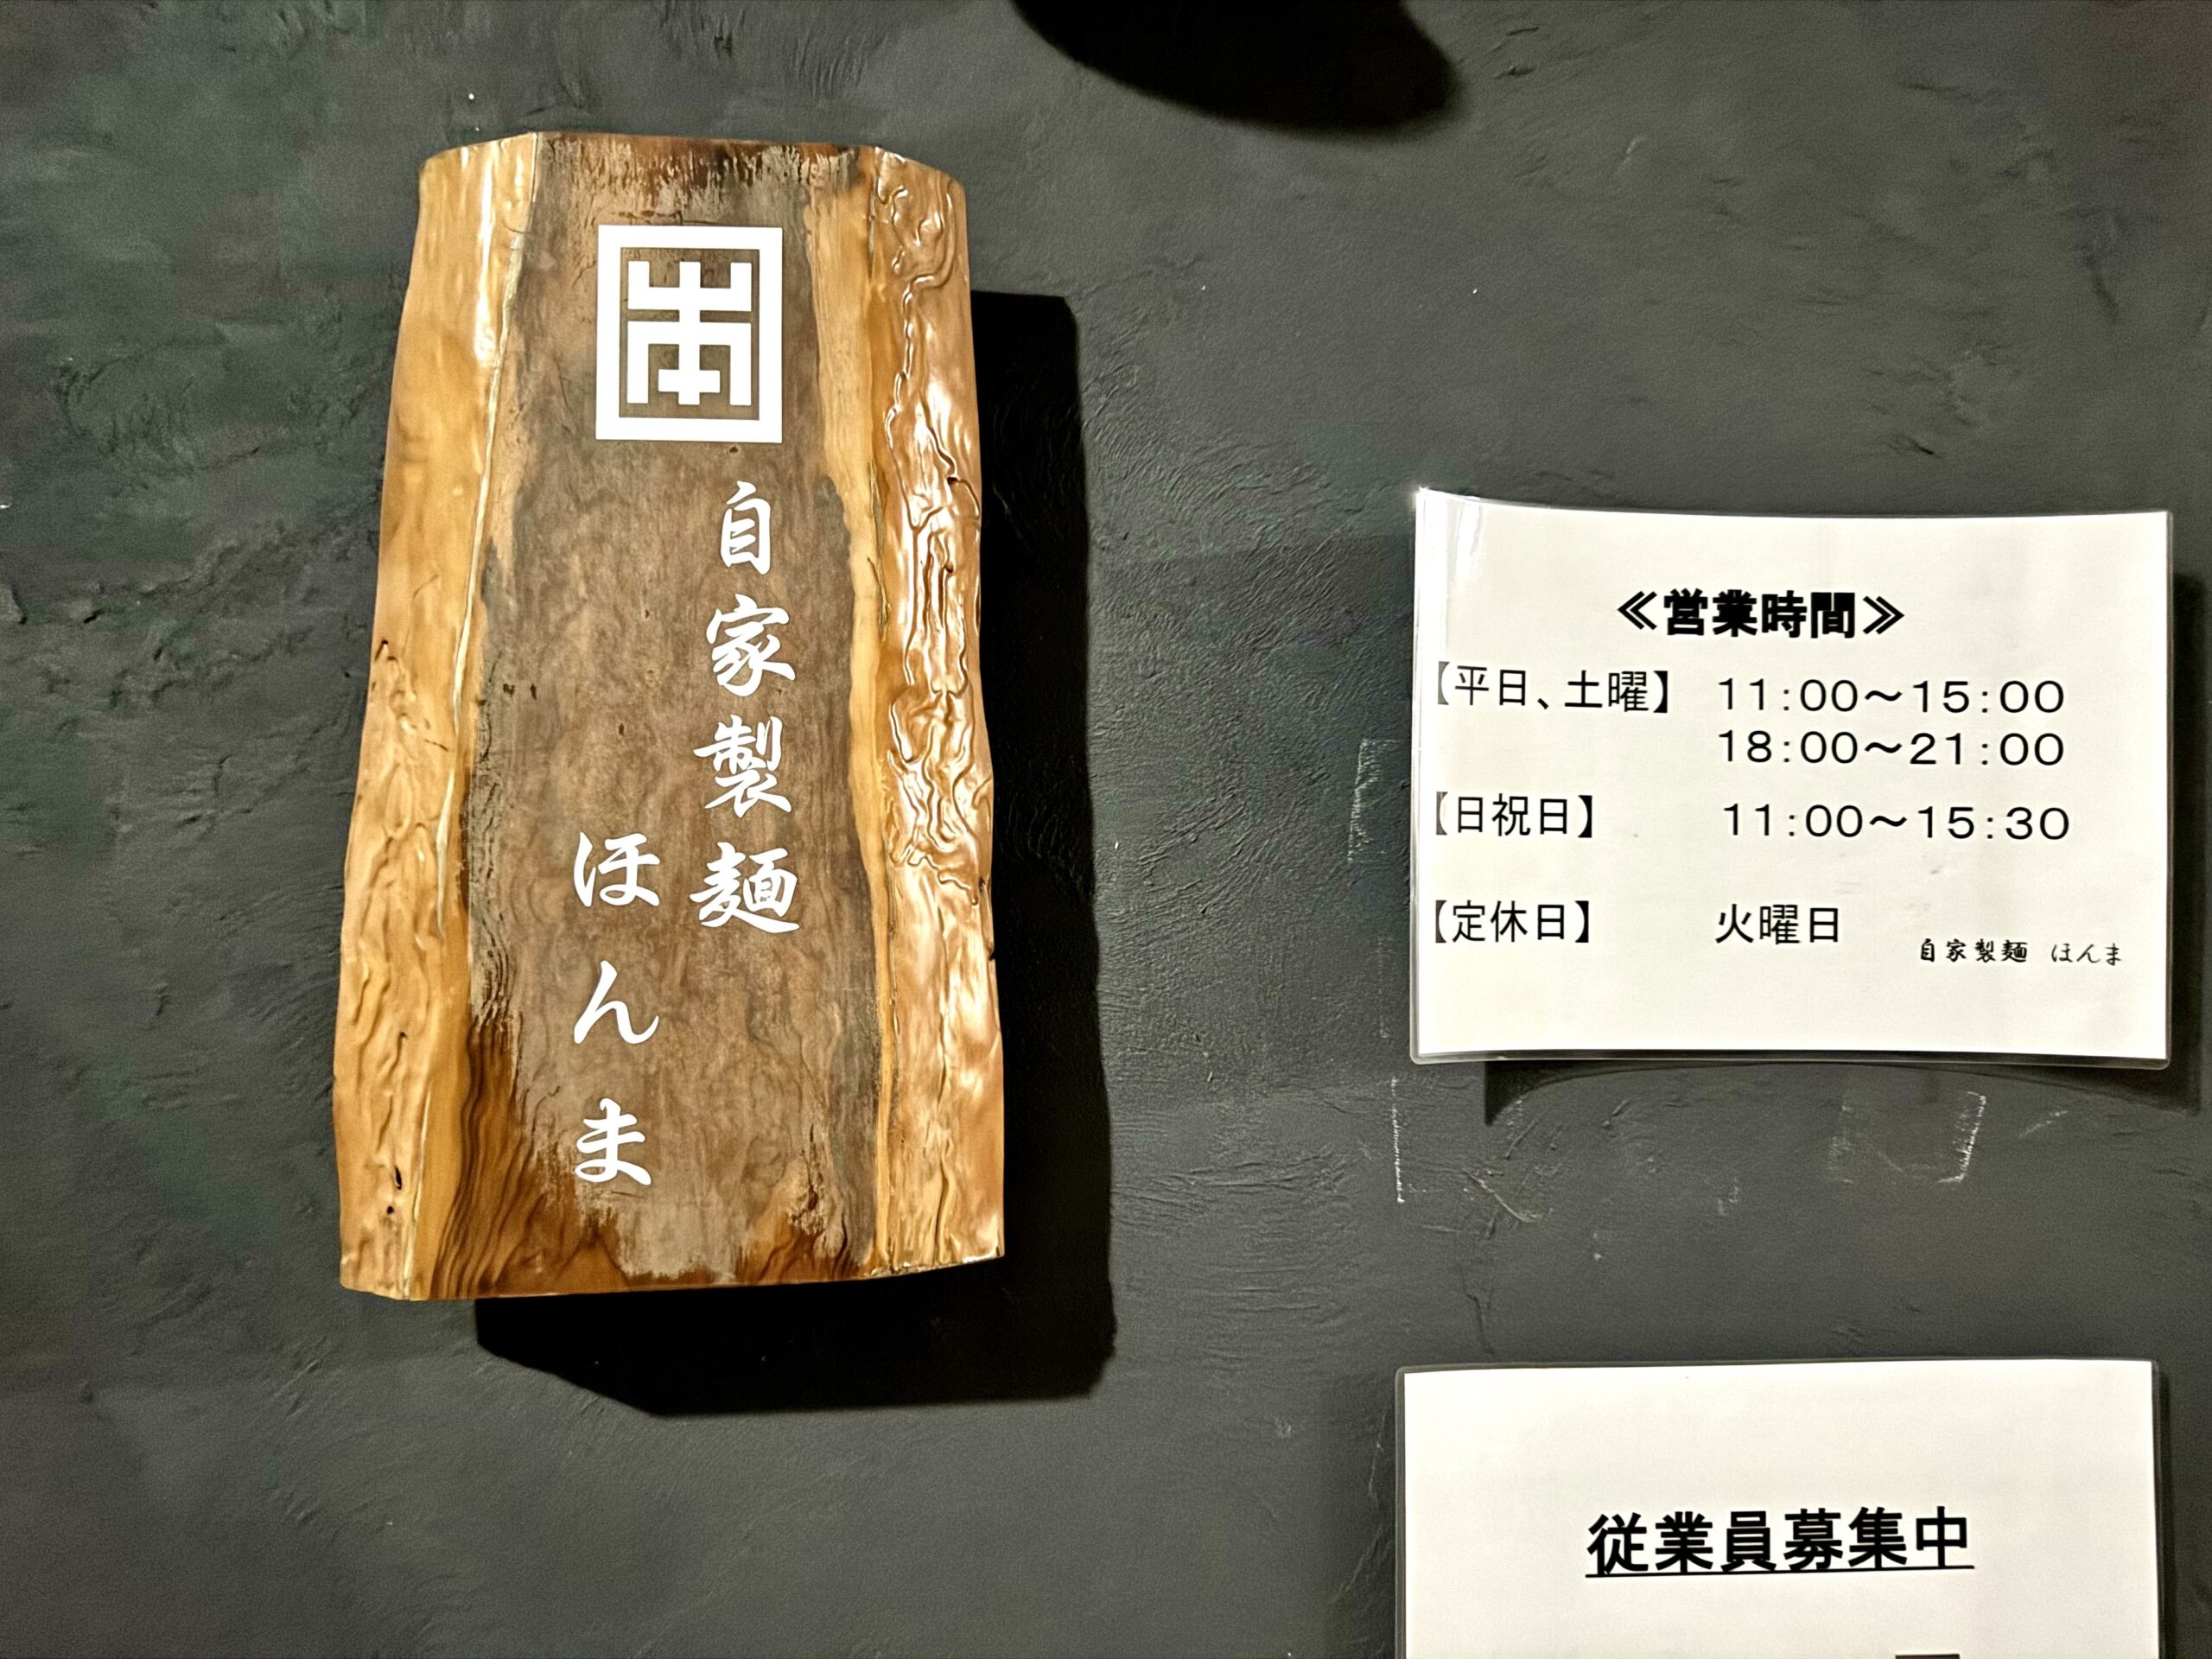 本
自家製麺
ほんま
≪営業時間≫
【平日、土曜】 11:00～15:00
18:00～21:00
【日祝日】 11:00～15:30
【定休日】 火曜日
自家製麺 ほんま
従業員募集中